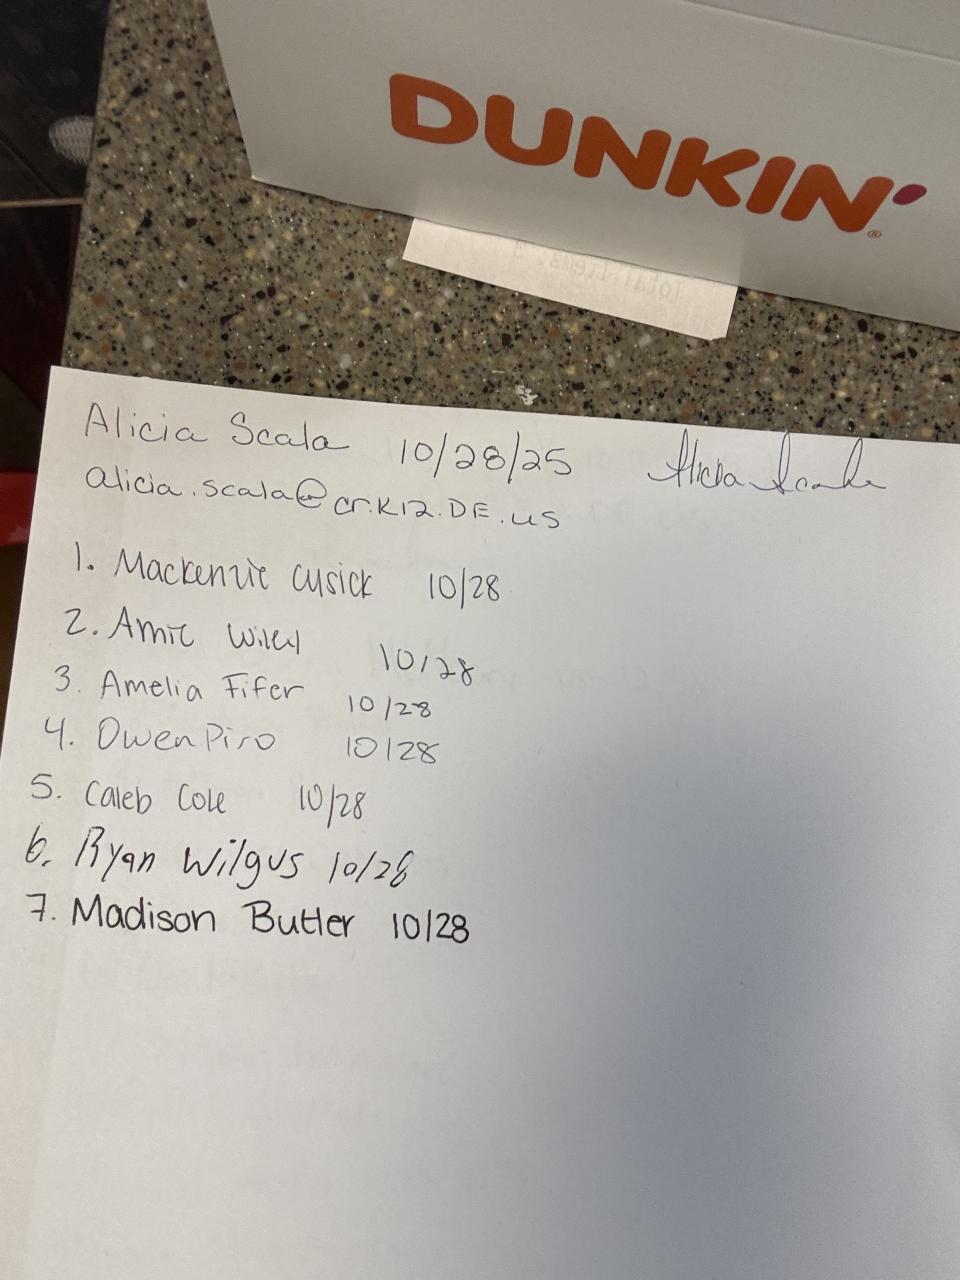 DUNKIN'
Total Items: 3
Alicia Scala 10/28/25 Alicia Scala
alicia.scala@cr.K12.DE.us
1. Mackenzie Cusick 10/28
2. Amie Wiley 10/28
3. Amelia Fifer 10/28
4. Owen Piro 10/28
5. Caleb Cole 10/28
6. Ryan Wilgus 10/28
7. Madison Butler 10/28